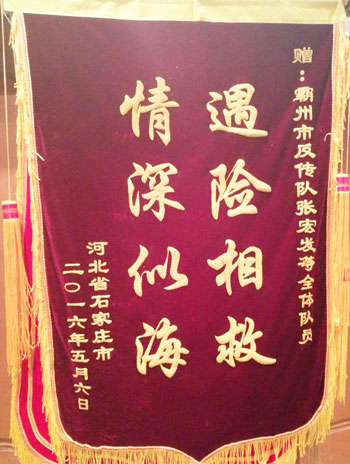 赠：霸州市反传队张宏发等全体队员
遇险相救
情深似海
河北省石家庄市
二〇一六年五月六日